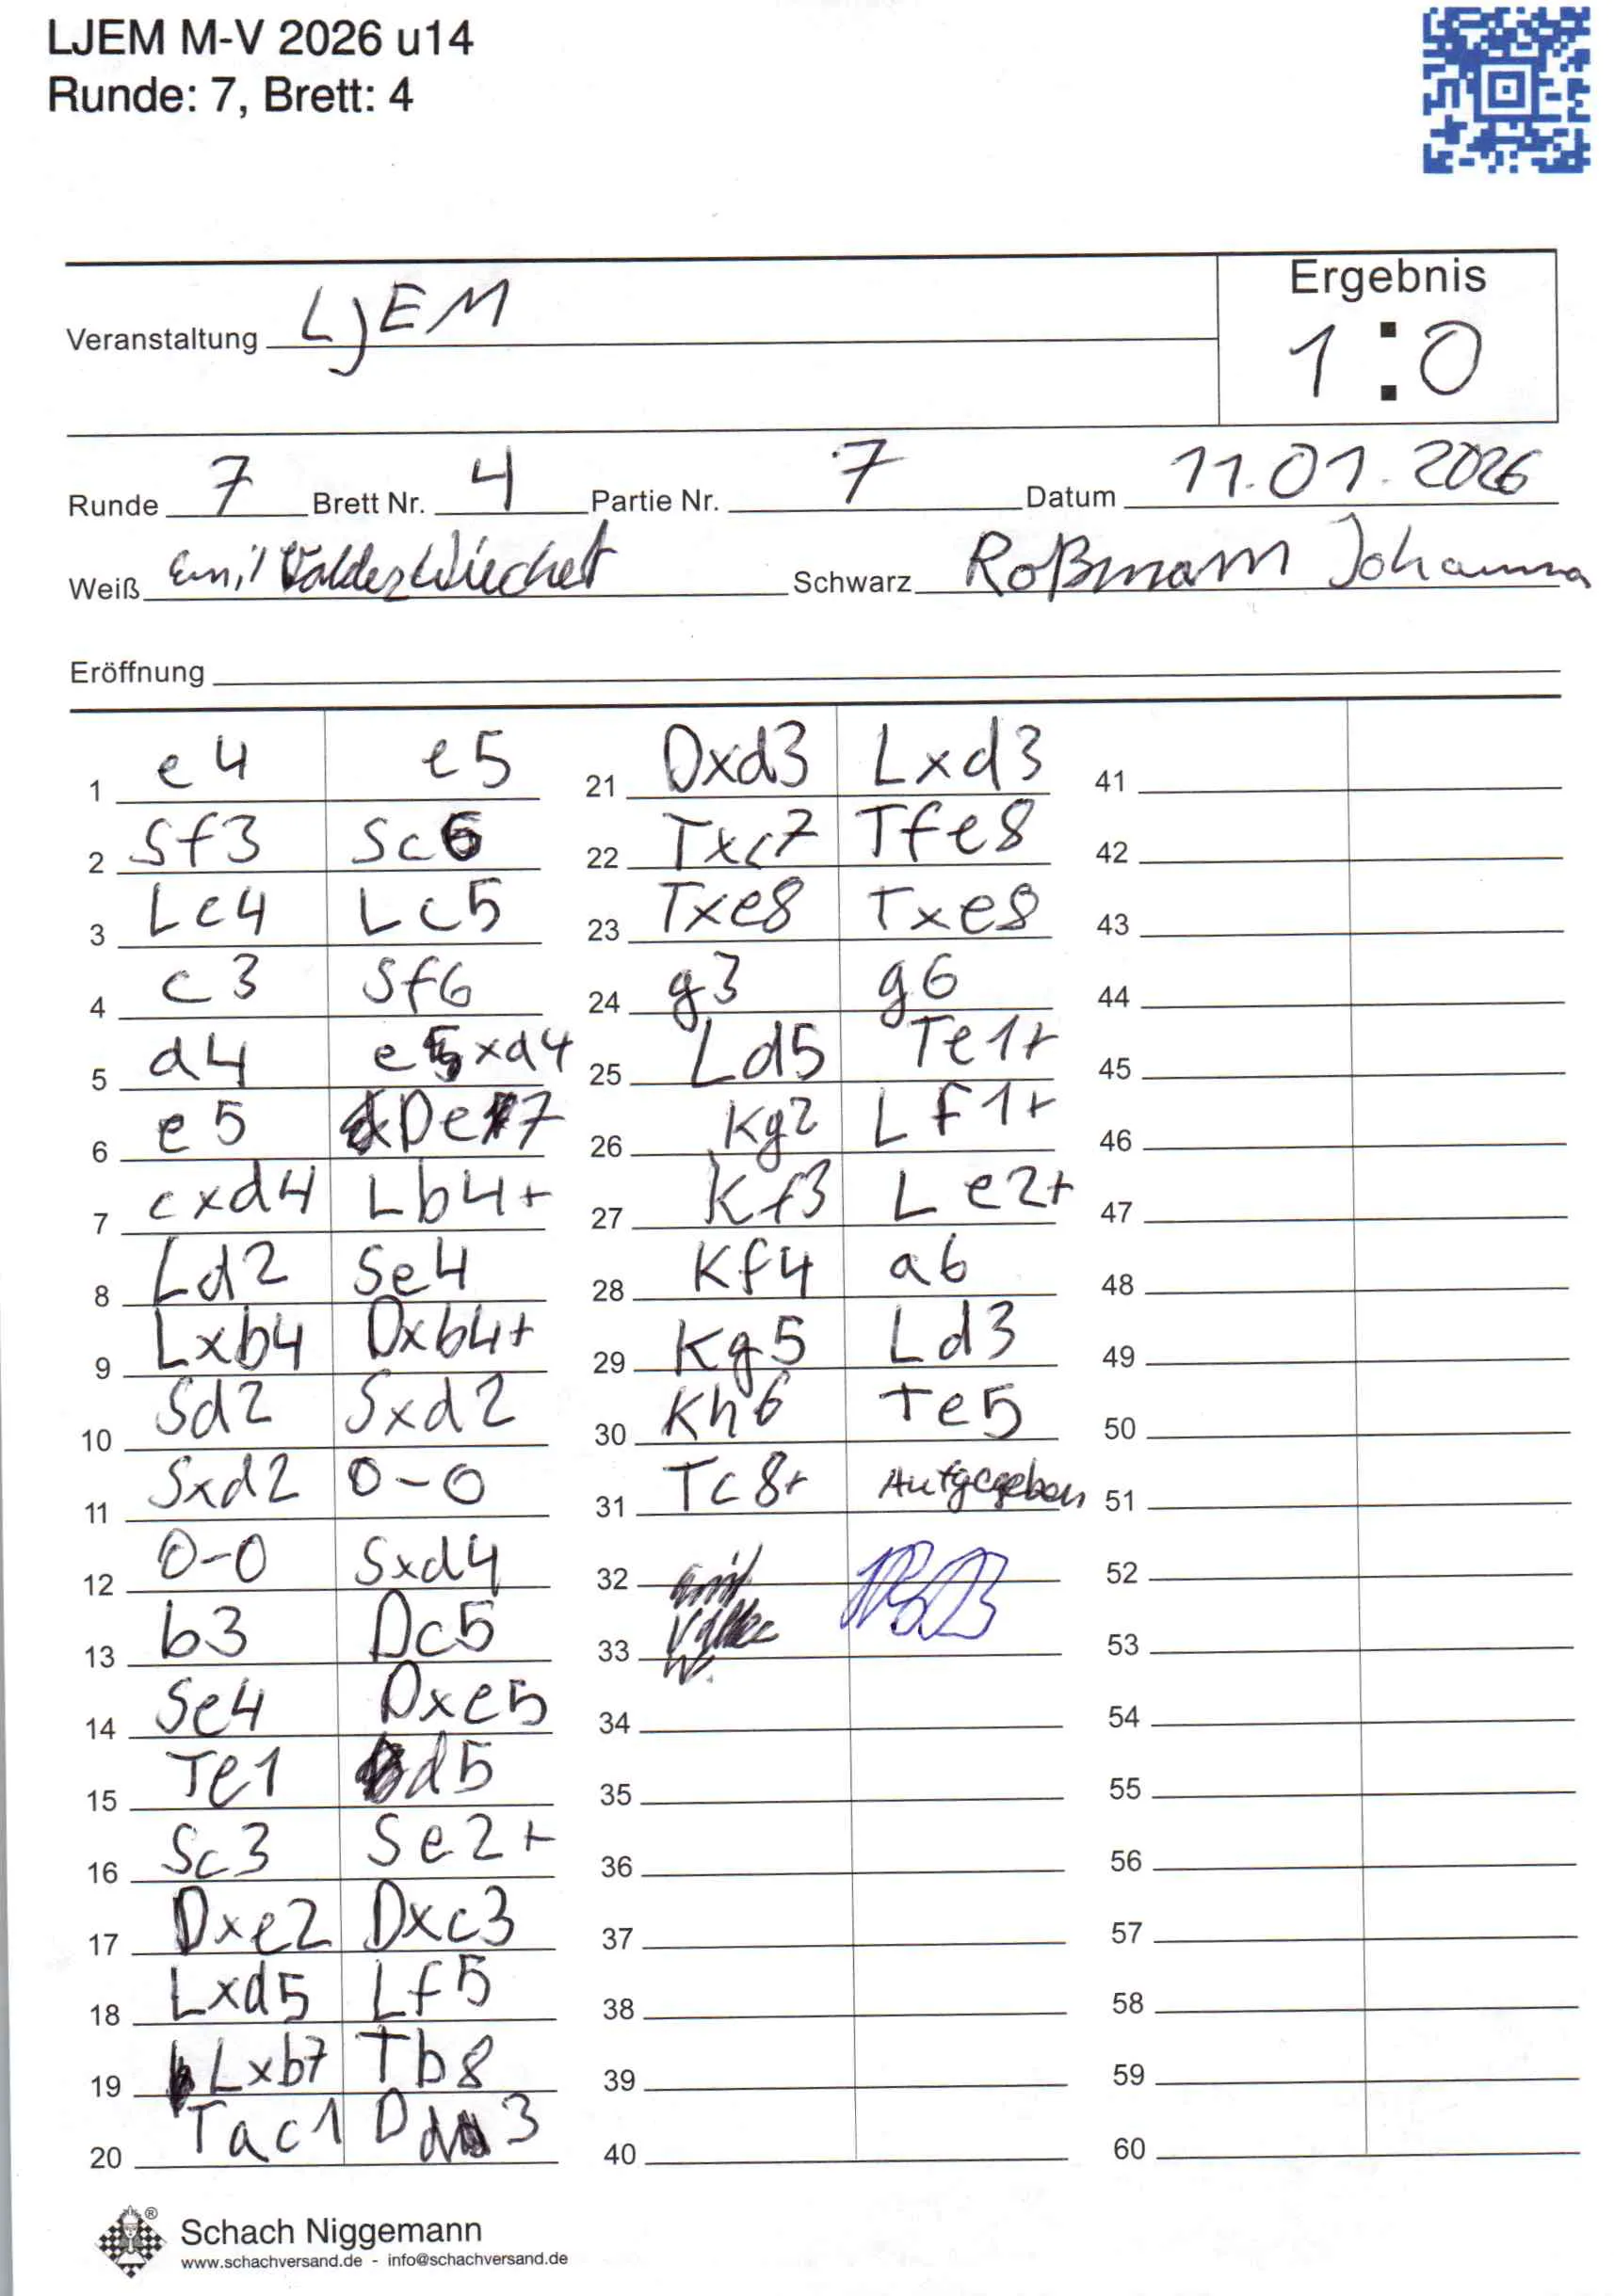 LJEM M-V 2026 u14
Runde: 7, Brett: 4
Ergebnis
Veranstaltung LJEM
1 : 0
Runde 7 Brett Nr. 4 Partie Nr. 7 Datum 11.01.2026
Weiß Emil Valdez Wiechert Schwarz Roßmann Johanna
Eröffnung
1 e4 e5 21 Dxd3 Lxd3 41
2 Sf3 Sc6 22 Txc7 Tfe8 42
3 Lc4 Lc5 23 Txe8 Txe8 43
4 c3 Sf6 24 g3 g6 44
5 d4 e5xd4 25 Ld5 Te1+ 45
6 e5 De7 26 Kg2 Lf1+ 46
7 cxd4 Lb4+ 27 Kf3 Le2+ 47
8 Ld2 Se4 28 Kf4 a6 48
9 Lxb4 Dxb4+ 29 Kg5 Ld3 49
10 Sd2 Sxd2 30 Kh6 Te5 50
11 Sxd2 0-0 31 Tc8+ Aufgegeben 51
12 0-0 Sxd4 32 52
13 b3 Dc5 33 53
14 Se4 Dxe5 34 54
15 Te1 d5 35 55
16 Sc3 Se2+ 36 56
17 Dxe2 Dxc3 37 57
18 Lxd5 Lf5 38 58
19 Lxb7 Tb8 39 59
20 Tac1 Dd3 40 60
®
Schach Niggemann
www.schachversand.de - info@schachversand.de